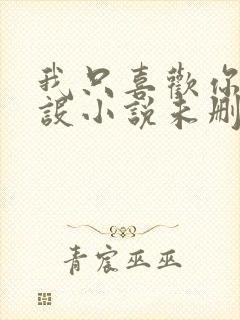 我只喜歡你
設小說未刪
青宸巫巫